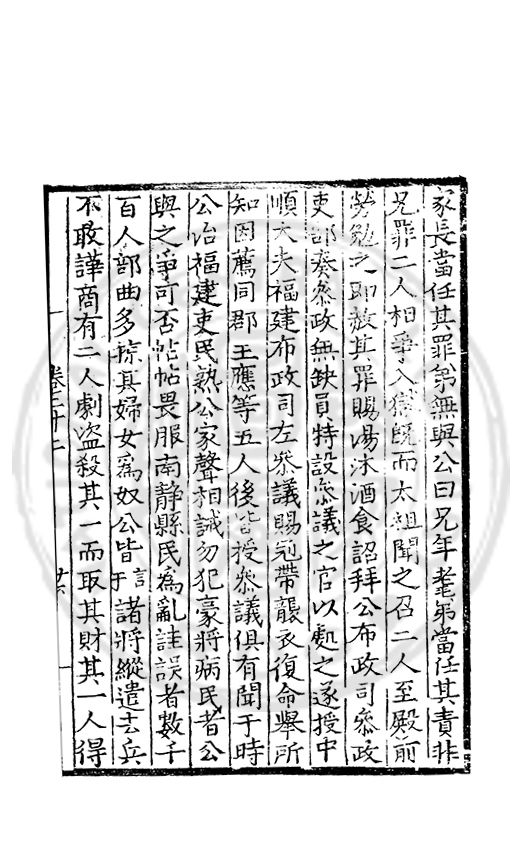 家長當任其罪弟無與公曰兄年耄弟當任其責非
兄罪二人相爭入獄旣而太祖聞之召二人至殿前
勞勉之即放其罪賜湯沐酒食詔拜公布政司叅政
吏部奏叅政無缺員特設叅議之官以處之遂授中
順大夫福建布政司左叅議賜冠帶襲衣復命舉所
知因薦同郡王應等五人後皆授叅議俱有聞于時
公治福建吏民熟公家聲相誡勿犯豪將病民者公
與之爭可否帖帖畏服南靜縣民爲亂詿誤者數千
百人部曲多掠其婦女爲奴公皆言于諸將縱遣去兵
不敢譁商有二人劇盜殺其一而取其財其一人得
卷三十二
廿六